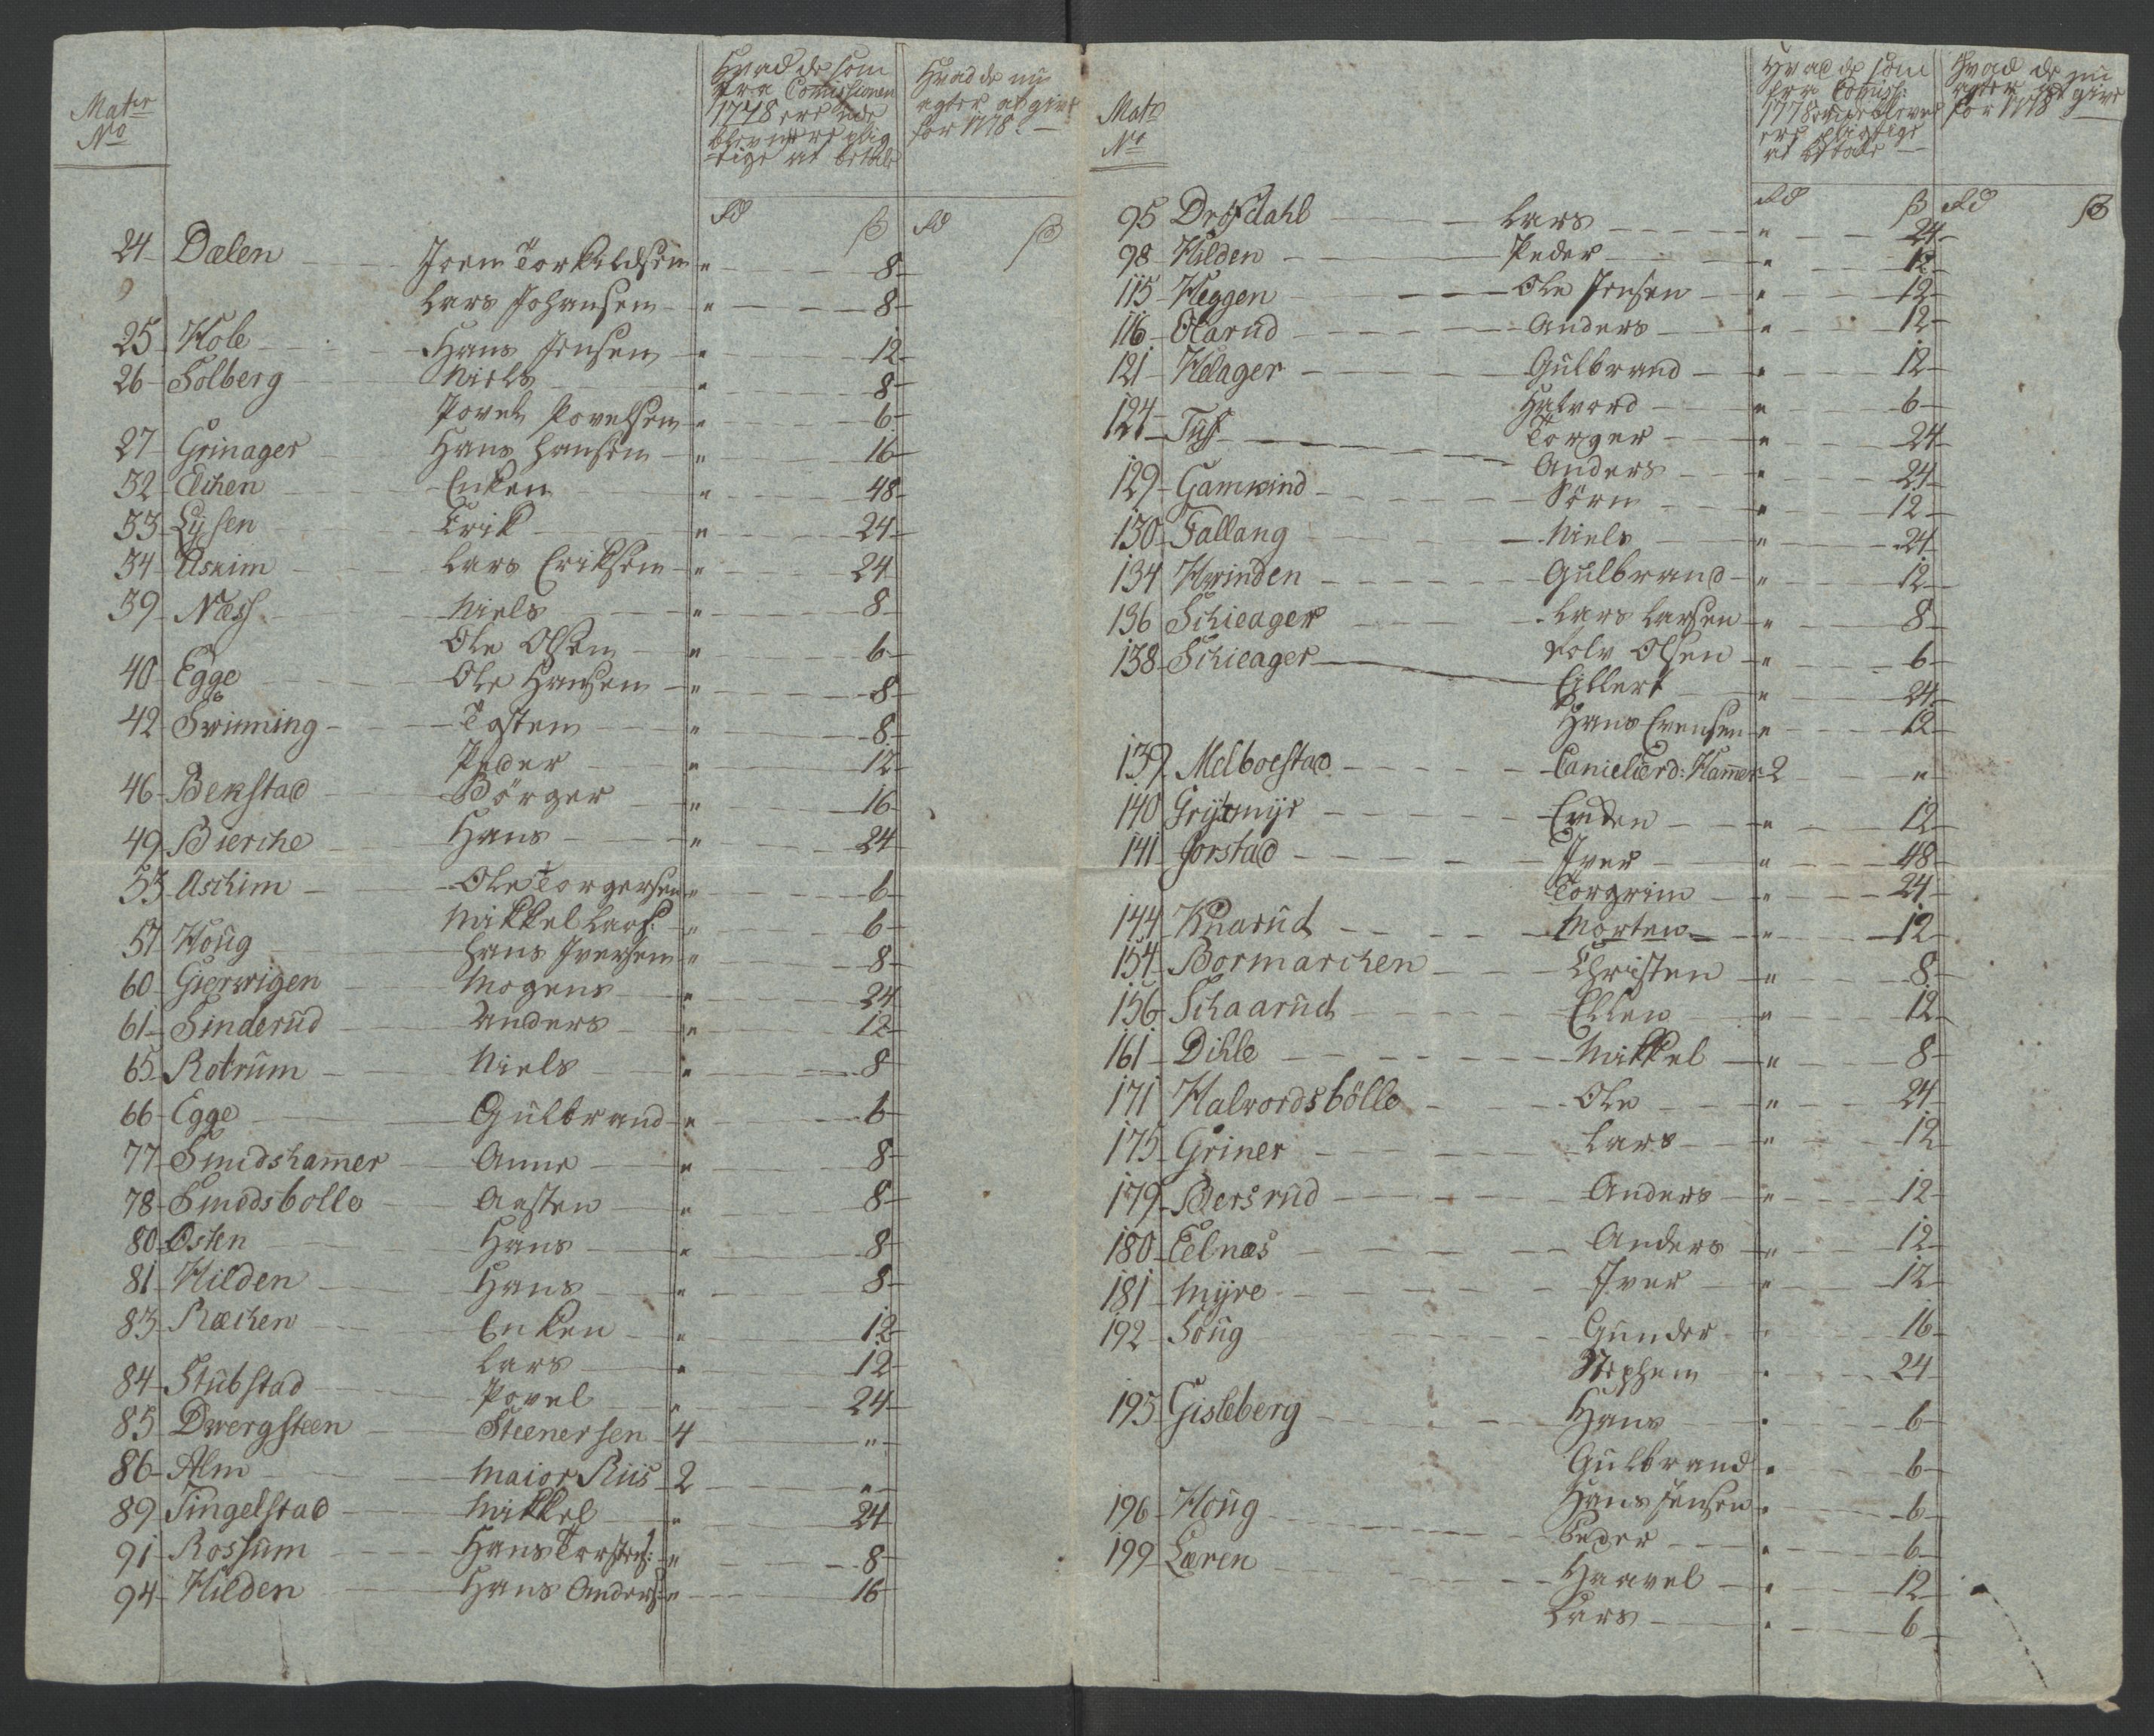 Matr
No
Hvad de som
fra Comissionen
1778 ere ude
blevne ere plig
tige at betale
Hvad de nu
agter at give
for 1778. —
Rd ß Rd ß
24 Dælen Joen Torkildsen " 8
Lars Johansen " 8
25 Hole Hans Jensen " 12
26 Solberg Niels " 8
Povel Povelsen " 6
27 Grinager Hans Hansen " 16
32 Eichen Enken " 48
33 Lysen Erik " 24
34 Askim Lars Eriksen " 24
39 Næss Niels " 8
Ole Olsen " 6
40 Egge Ole Hansen " 8
42 Swinning Tosten " 8
Peder " 12
46 Bekstad Börger " 16
49 Bierche Hans " 24
53 Aschim Ole Torgersen " 6
Mikkel Lars: " 6
57 Houg Hans Iversen " 8
60 Gierwigen Mogens " 24
61 Sinderud Anders " 12
65 Rotrum Niels " 8
66 Egge Gulbrand " 6
77 Smidshamer Anne " 8
78 Smedsbølle Aasten " 8
80 Østen Hans " 8
81 Hilden Hans " 8
83 Ræchen Enken " 12
Lars " 12
84 Stubstad Povel " 24
85 Dwergsteen Steenersen 4 "
86 Alm Maior Riis 2 "
89 Tingelstad Mikkel " 24
91 Rossum Hans Torstens: " 8
94 Hilden Hans Anders: " 16
Matr
No
Hvad de som
fra Comiss:
1778 ere ude blevne
ere pligtige
at betale
Hvad de nu
agter at give
for 1778
Rd ß Rd ß
95 Drøfdahl Lars " 24
98 Hilden Peder " 12
115 Heggen Ole Jensen " 12
116 Olarud Anders " 12
121 Helager Gulbrand " 12
124 Halvord " 6
121 Tuf Torger " 24
Anders " 24
129 Gamkind Sörn " 12
130 Fallang Niels " 24
134 Hwinden Gulbrand " 12
136 Schieager Lars Larsen " 8
138 Schieager Rolv Olsen " 6
Eillert " 24
Hans Evensen " 12
139 Melboestad Cancelierd: Hamer: 2 "
140 Grytmyr Enken " 12
141 Jorstad Iver " 48
Torgrim " 24
144 Knarud Morten " 12
154 Bormarchen Christen " 8
156 Schaarud Ellen " 12
161 Dihle Mikkel " 8
171 Halvordsbölle Ole " 24
175 Griner Lars " 12
179 Bersrud Anders " 12
180 Eelnæs Anders " 12
181 Myre Iver " 12
192 Soug Gunder " 16
Stephen " 24
195 Gisleberg Hans " 6
Gulbrand " 6
196 Houg Hans Jensen " 6
Peder " 6
199 Læren Haavel " 12
Lars " 6